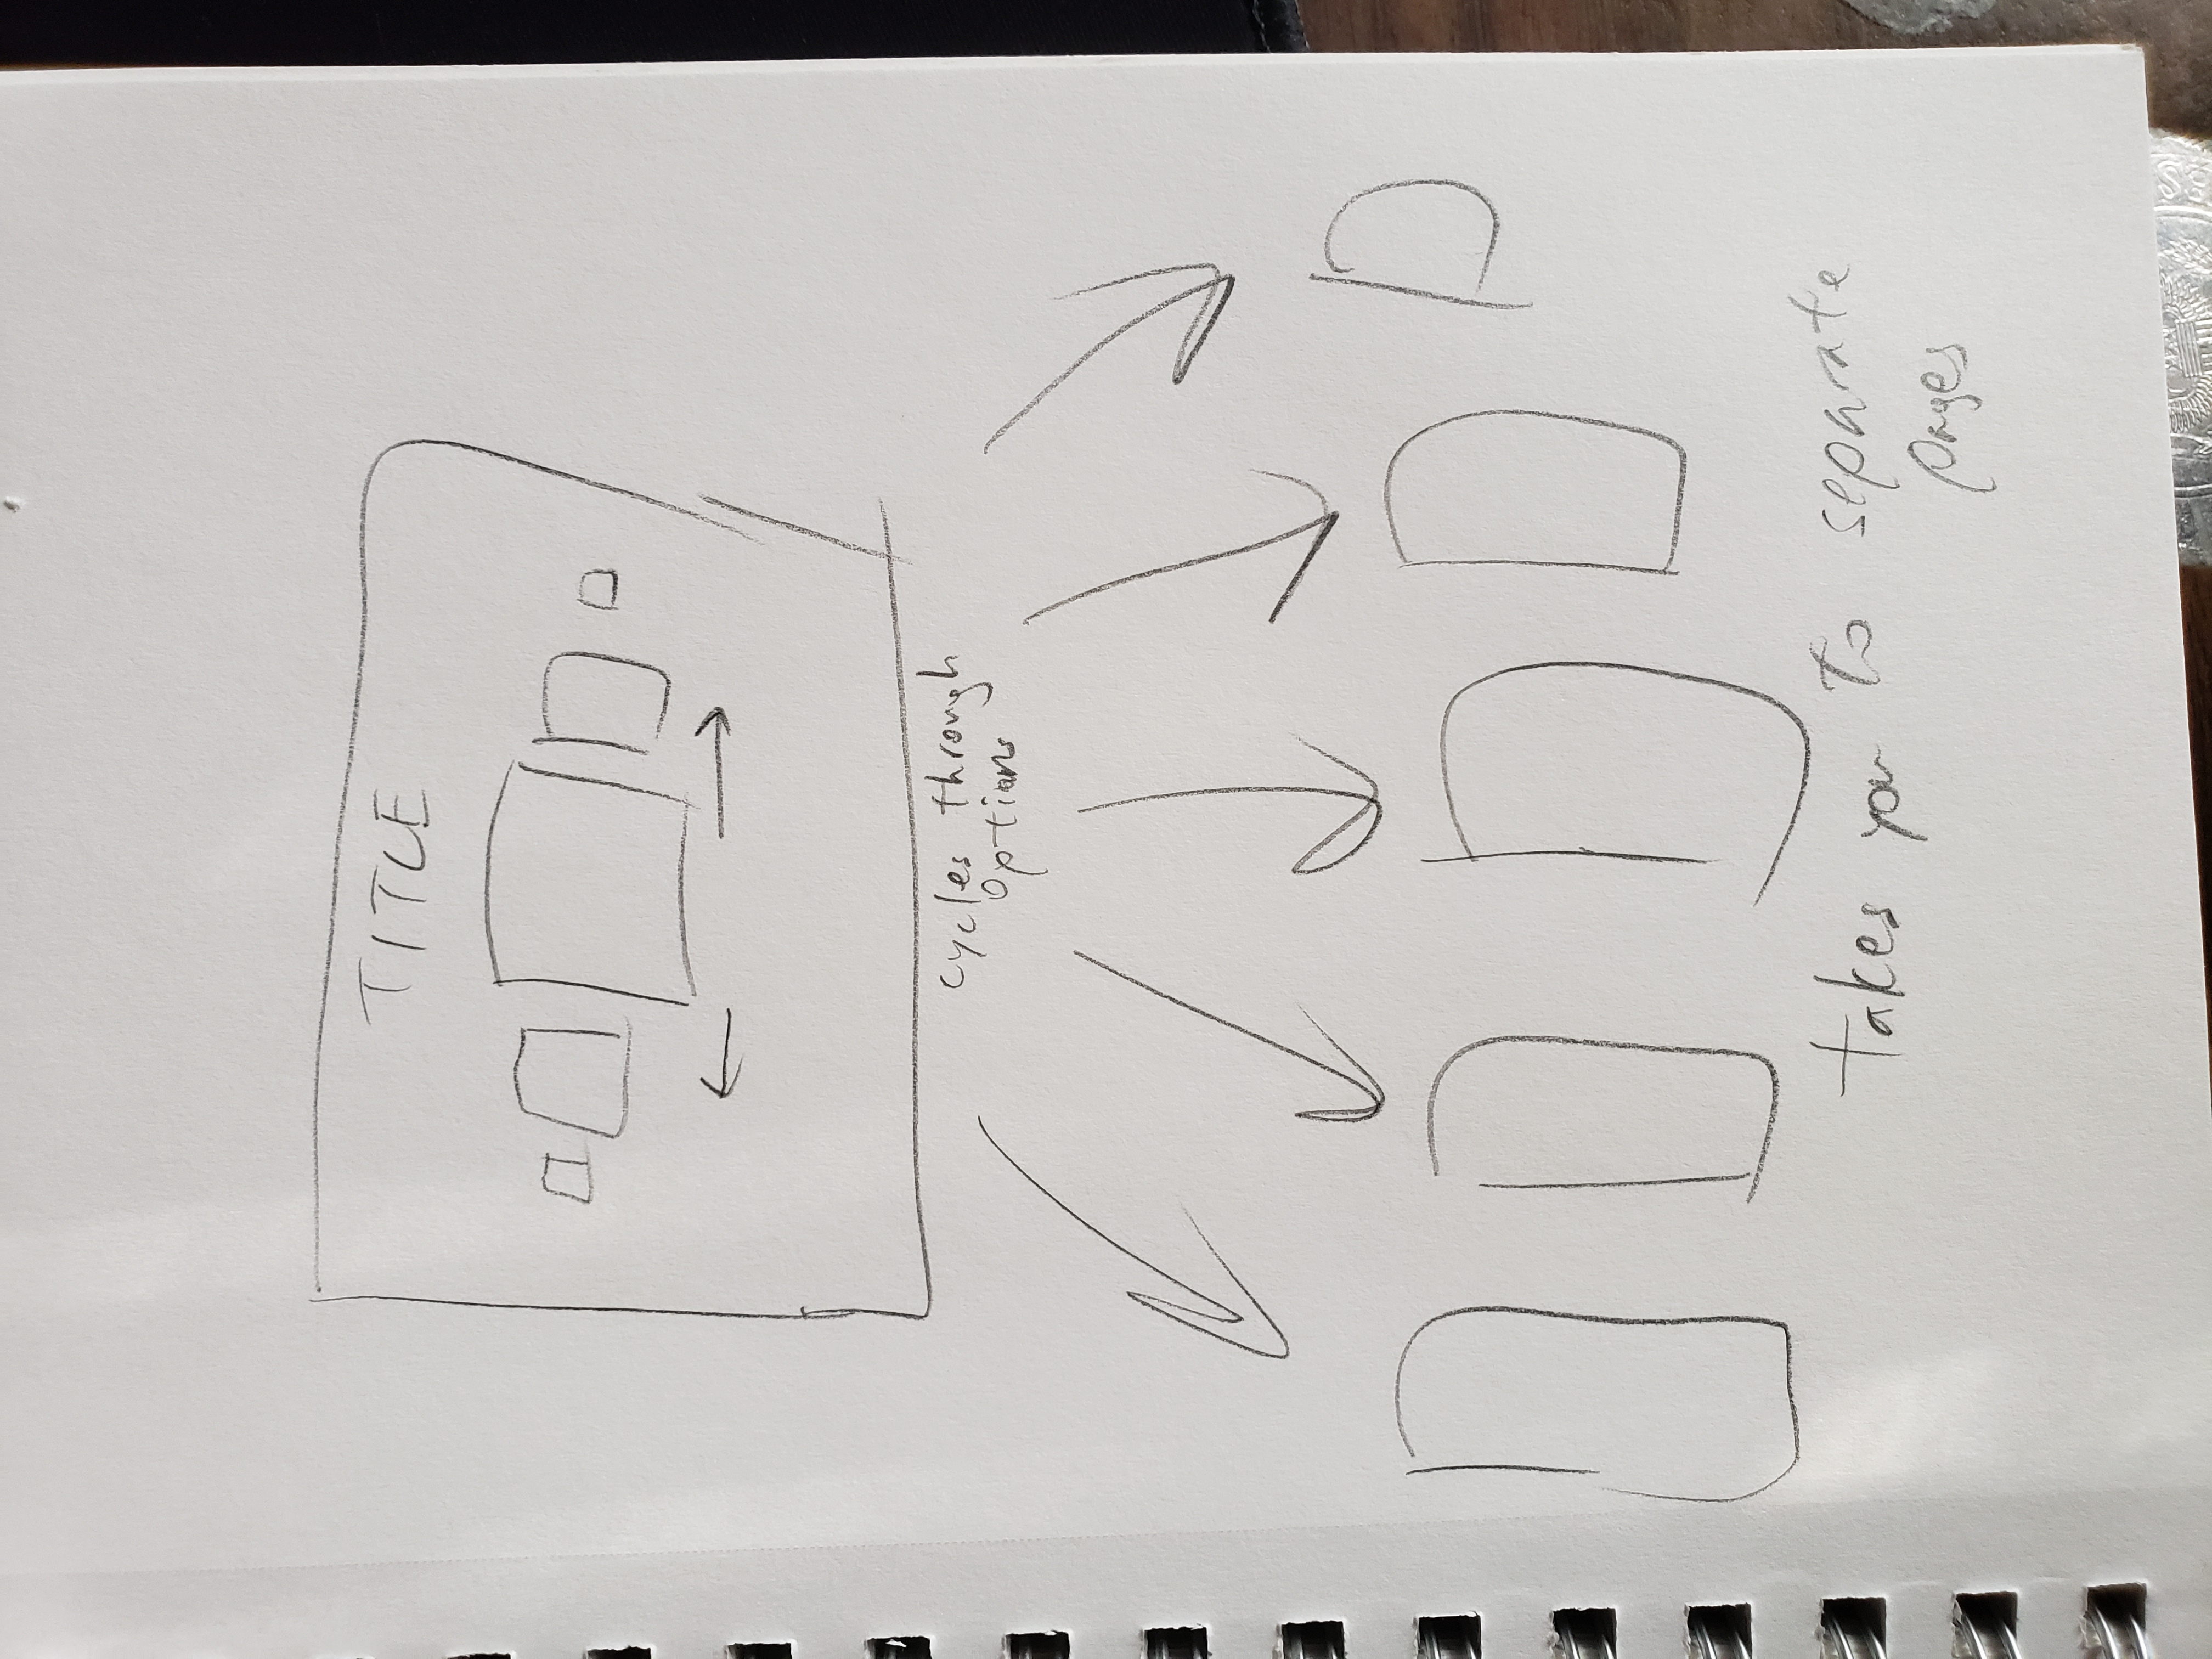 TITLE
cycles through
options
takes you to separate
pages